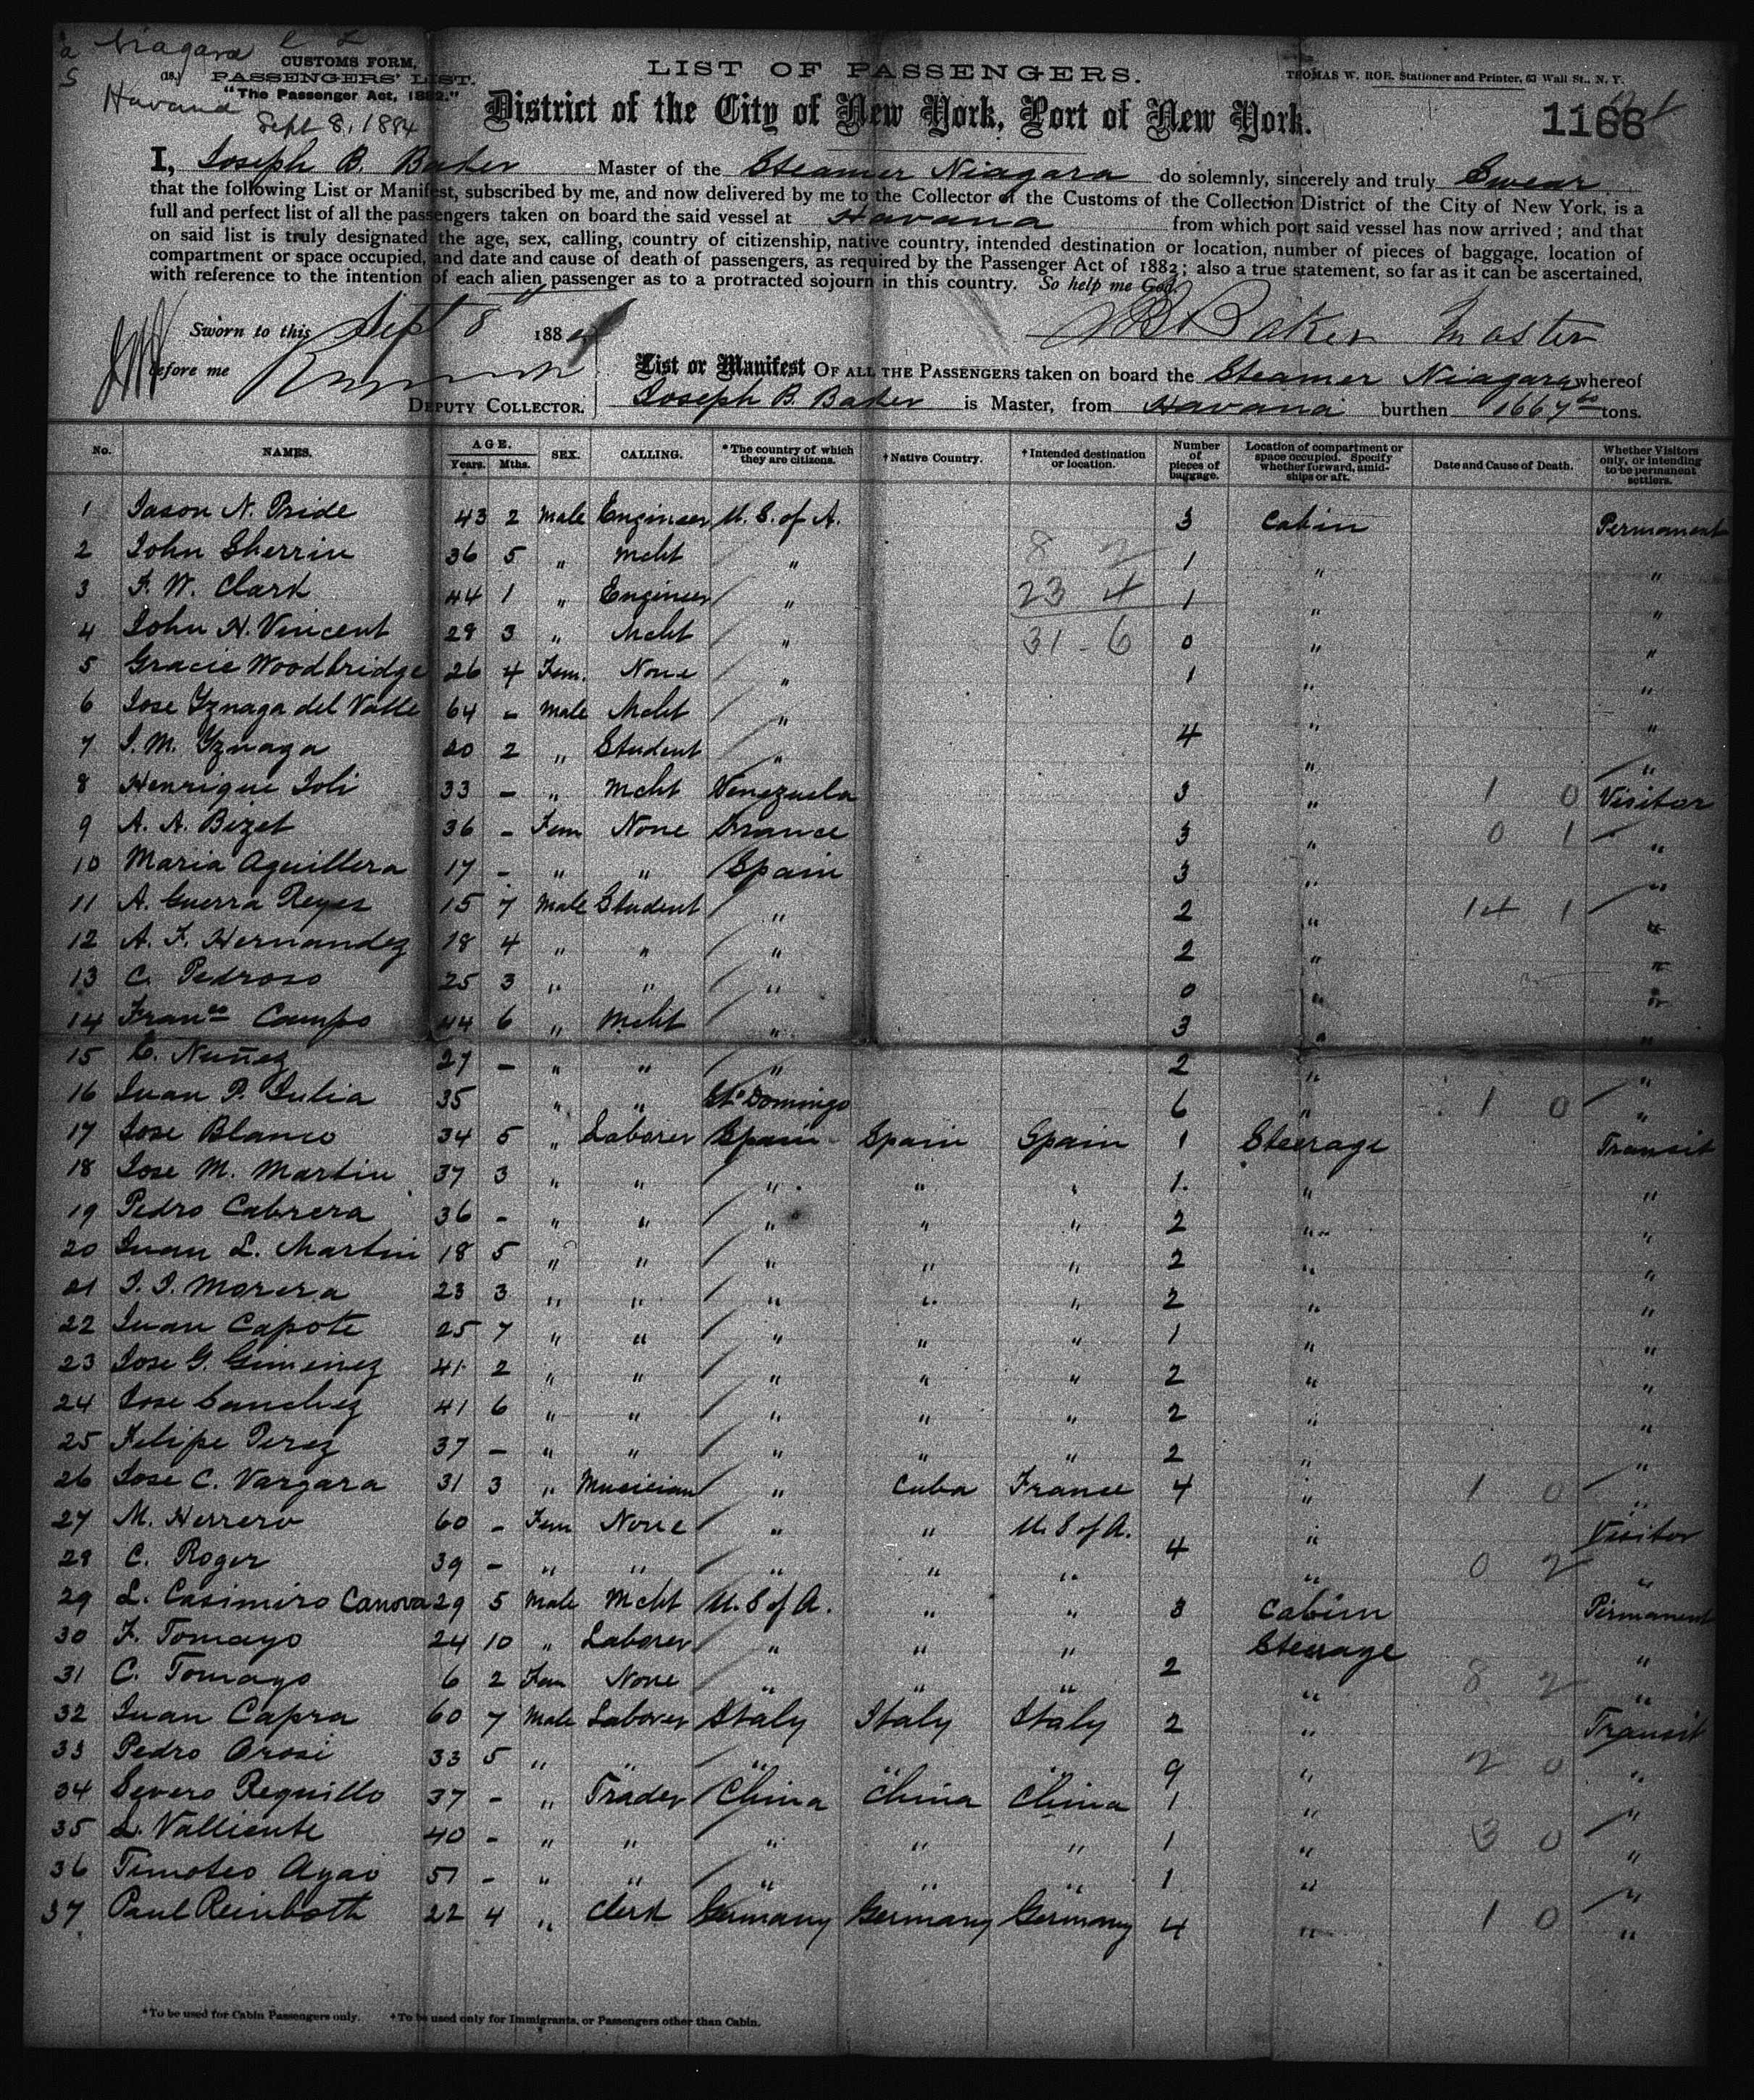 Niagara
Havana
Sept 8, 1884
CUSTOMS FORM,
(18.) PASSENGERS' LIST.
"The Passenger Act, 1882."
LIST OF PASSENGERS.
THOMAS W. ROE, Stationer and Printer, 63 Wall St., N. Y.
District of the City of New York, Port of New York.
1166
I, Joseph B. Baker Master of the Steamer Niagara do solemnly, sincerely and truly Swear
that the following List or Manifest, subscribed by me, and now delivered by me to the Collector of the Customs of the Collection District of the City of New York, is a
full and perfect list of all the passengers taken on board the said vessel at Havana from which port said vessel has now arrived; and that
on said list is truly designated the age, sex, calling, country of citizenship, native country, intended destination or location, number of pieces of baggage, location of
compartment or space occupied, and date and cause of death of passengers, as required by the Passenger Act of 1882; also a true statement, so far as it can be ascertained,
with reference to the intention of each alien passenger as to a protracted sojourn in this country. So help me God.
Sworn to this Sept 8th 1884
JB Baker Master
before me
DEPUTY COLLECTOR.
List or Manifest OF ALL THE PASSENGERS taken on board the Steamer Niagara whereof
Joseph B. Baker is Master, from Havana burthen 1667 60 tons.
No. NAMES. AGE. Years. Mths. SEX. CALLING. *The country of which they are citizens. †Native Country. †Intended destination or location. Number of pieces of baggage. Location of compartment or space occupied. Specify whether forward, amidships or aft. Date and Cause of Death. Whether Visitors only, or intending to be permanent settlers.
1 Jason N. Pride 43 2 Male Engineer U. S. of A. 3 Cabin Permanent
2 John Sherrin 36 5 " Mcht " 8 2 1 " "
3 F. W. Clark 44 1 " Engineer " 23 4 1 " "
4 John H. Vincent 29 3 " Mcht " 31 - 6 0 " "
5 Gracie Woodbridge 26 4 Fem. None " 1 " "
6 Jose Yznaga del Valle 64 - Male Mcht " " "
7 J. M. Yznaga 20 2 " Student " 4 " "
8 Henrique Joli 33 - " Mcht Venezuela 3 " 1 0 Visitor
9 A. A. Bizet 36 - Fem None France 3 " 0 1 "
10 Maria Aguillera 17 - " " Spain 3 " "
11 A. Guerra Reyes 15 7 Male Student " 2 " 14 1 "
12 A. F. Hernandez 18 4 " " " 2 " "
13 C. Pedroso 25 3 " " " 0 " "
14 Franco Campo 44 6 " Mcht " 3 " "
15 C. Nuñez 27 - " " " 2 " "
16 Juan P. Julia 35 " " Sto Domingo 6 " 1 0 "
17 Jose Blanco 34 5 " Laborer Spain Spain Spain 1 Steerage Transit
18 Jose M. Martin 37 3 " " " " " 1 " "
19 Pedro Cabrera 36 - " " " " " 2 " "
20 Juan L. Martin 18 5 " " " " " 2 " "
21 J. J. Morera 23 3 " " " " " 2 " "
22 Juan Capote 25 7 " " " " " 1 " "
23 Jose G. Gimenez 41 2 " " " " " 2 " "
24 Jose Sanchez 41 6 " " " " " 2 " "
25 Felipe Perez 37 - " " " " " 2 " "
26 Jose C. Vargara 31 3 " Musician " Cuba France 4 " 1 0 "
27 M. Herrero 60 - Fem None " " U. S of A. " Visitor
28 C. Roger 39 - " " " " " 4 " 0 2 "
29 L. Casimiro Canova 29 5 Male Mcht U. S of A. " " 3 Cabin Permanent
30 F. Tomayo 24 10 " Laborer " " " Steerage "
31 C. Tomayo 6 2 Fem None " " " 2 " 8 2 "
32 Juan Capra 60 7 Male Laborer Italy Italy Italy 2 " Transit
33 Pedro Orosi 33 5 " " " " " 9 " 2 0 "
34 Severo Requillo 37 - " Trader China China China 1 " "
35 L. Valliente 40 - " " " " " 1 " 3 0 "
36 Timoteo Ayao 51 - " " " " " 1 " "
37 Paul Reinboth 22 4 " Clerk Germany Germany Germany 4 " 1 0 "
*To be used for Cabin Passengers only. †To be used only for Immigrants, or Passengers other than Cabin.